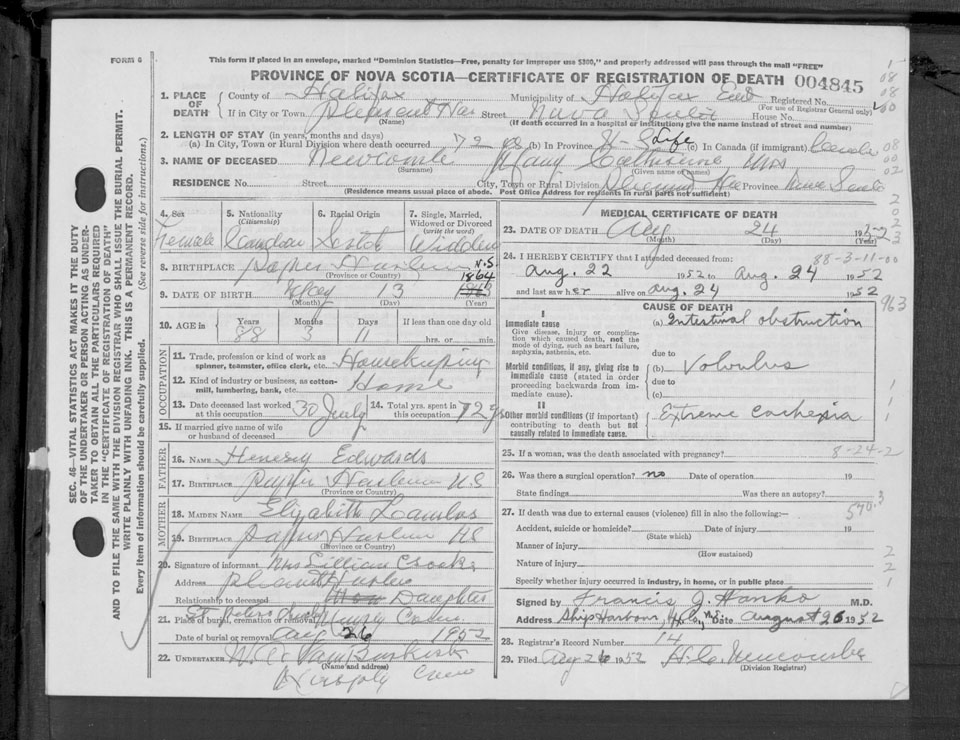 FORM 6
This form if placed in an envelope, marked "Dominion Statistics—Free, penalty for improper use $300," and properly addressed will pass through the mail "FREE"
PROVINCE OF NOVA SCOTIA—CERTIFICATE OF REGISTRATION OF DEATH 004845
SEC. 46—VITAL STATISTICS ACT MAKES IT THE DUTY
OF THE UNDERTAKER OR PERSON ACTING AS UNDER-
TAKER TO OBTAIN ALL THE PARTICULARS REQUIRED
IN THE "CERTIFICATE OF REGISTRATION OF DEATH"
AND TO FILE THE SAME WITH THE DIVISION REGISTRAR WHO SHALL ISSUE THE BURIAL PERMIT.
WRITE PLAINLY WITH UNFADING INK. THIS IS A PERMANENT RECORD.
Every item of information should be carefully supplied. (See reverse side for instructions.)
1. PLACE OF DEATH County of Halifax Municipality of Halifax East Registered No.
(For use of Registrar General only)
If in City or Town Street Nova Scotia House No.
(Name) (If death occurred in a hospital or institution, give the name instead of street and number)
2. LENGTH OF STAY (in years, months and days)
(a) In City, Town or Rural Division where death occurred 72 (b) In Province Life (c) In Canada (if immigrant)
3. NAME OF DECEASED Newcombe Catherine Mrs
(Surname) (Given name or names)
RESIDENCE No. Street City, Town or Rural Division Province Nova Scotia
(Residence means usual place of abode. Post Office Address for residents in rural parts not sufficient)
4. Sex Female
5. Nationality (Citizenship) Canadian
6. Racial Origin Scotch
7. Single, Married, Widowed or Divorced (write the word) Widow
8. BIRTHPLACE N.S.
(Province or Country)
9. DATE OF BIRTH 13 1864
(Month) (Day) (Year)
10. AGE in Years Months Days If less than one day old
88 3 11 hrs. or min.
OCCUPATION
11. Trade, profession or kind of work as spinner, teamster, office clerk, etc. Housekeeping
12. Kind of industry or business, as cotton-mill, lumbering, bank, etc. Home
13. Date deceased last worked at this occupation 30 July
14. Total yrs. spent in this occupation 72 yrs
15. If married give name of wife or husband of deceased
FATHER
16. NAME Henery Edwards
17. BIRTHPLACE N.S
(Province or Country)
MOTHER
18. MAIDEN NAME Elizabeth
19. BIRTHPLACE NS
(Province or Country)
20. Signature of informant Mrs Lillian
Address
Relationship to deceased Daughter
21. Place of burial, cremation or removal
Date of burial or removal Aug 26 1952
22. UNDERTAKER
(Name and address)
MEDICAL CERTIFICATE OF DEATH
23. DATE OF DEATH Aug 24 1952
(Month) (Day) (Year)
24. I HEREBY CERTIFY that I attended deceased from 88-3-11-00
Aug. 22 1952 to Aug. 24 1952
and last saw her alive on Aug. 24 1952
963
CAUSE OF DEATH
I
Immediate cause (a) Intestinal obstruction
Give disease, injury or complication which caused death, not the mode of dying, such as heart failure, asphyxia, asthenia, etc. due to
Morbid conditions, if any, giving rise to immediate cause (stated in order proceeding backwards from immediate cause). (b) Volvulus
due to
(c)
II
Other morbid conditions (if important) contributing to death but not causally related to immediate cause. Extreme cachexia
25. If a woman, was the death associated with pregnancy? 8-24-2
26. Was there a surgical operation? no Date of operation 19
State findings Was there an autopsy?
27. If death was due to external causes (violence) fill in also the following:— 570.3
Accident, suicide or homicide? Date of injury 19
(State which)
Manner of injury
(How sustained)
Nature of injury
Specify whether injury occurred in industry, in home, or in public place
Signed by Francis J. Hanko M.D.
Address Ship Harbour, N.S. Date August 26 1952
28. Registrar's Record Number 14
29. Filed Aug 26 1952 H.C. Newcombe
(Division Registrar)